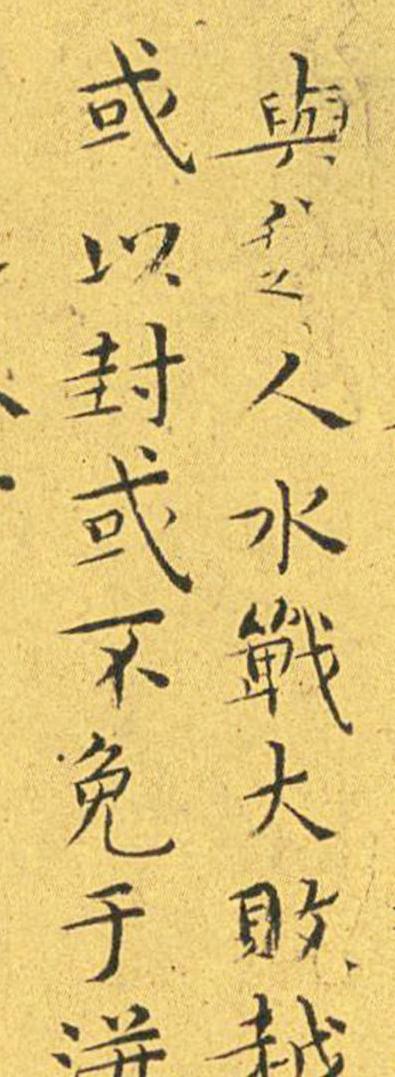 與越人水戰大敗越
或以封或不免于洴